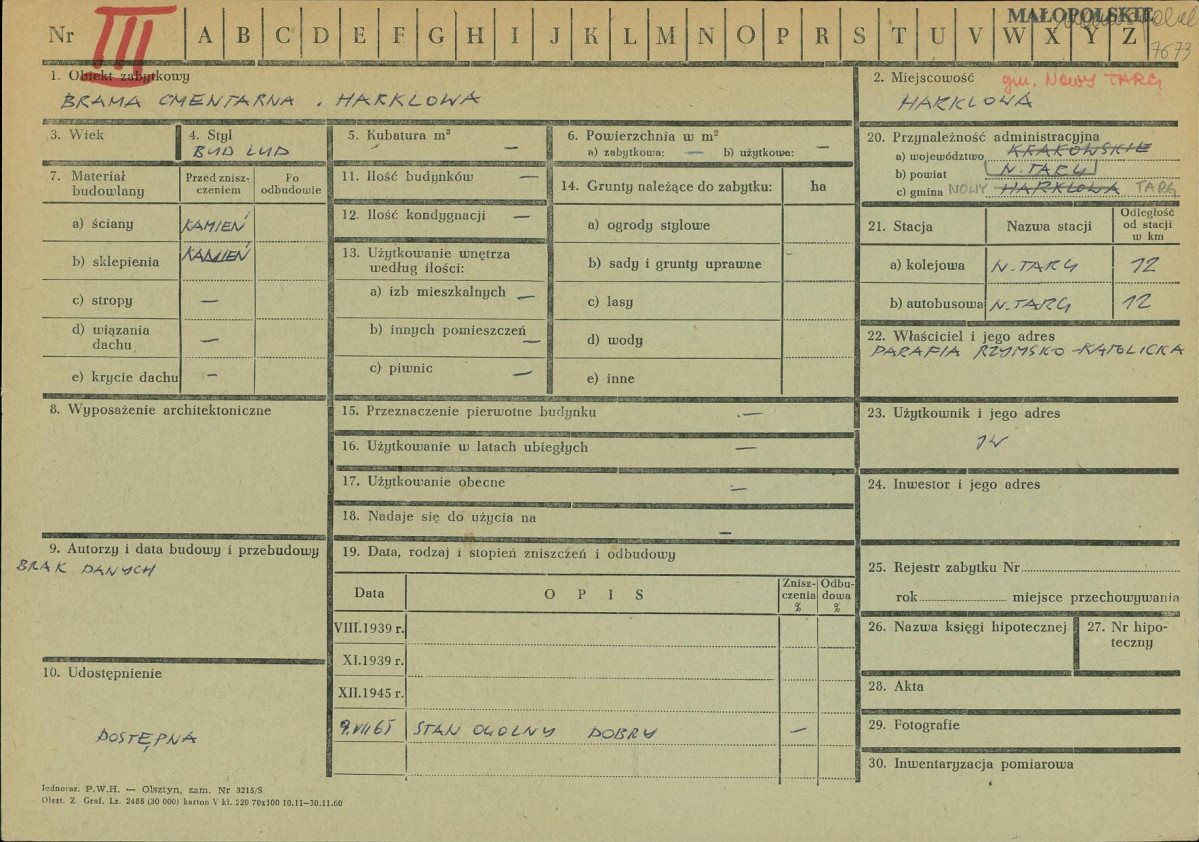 Nr III A B C D E F G H I J K L M N O P R S T U V W X Y Z
MAŁOPOLSKIE
7673
1. Obiekt zabytkowy
BRAMA CMENTARNA . HARKLOWA
2. Miejscowość gm. NOWY TARG
HARKLOWA
3. Wiek
4. Styl
BUD LUD
5. Kubatura m³ —
6. Powierzchnia w m²
a) zabytkowa: — b) użytkowa: —
7. Materiał budowlany
Przed znisz-
czeniem
Po
odbudowie
a) ściany KAMIEŃ
b) sklepienia KAMIEŃ
c) stropy —
d) wiązania
dachu —
e) krycie dachu —
8. Wyposażenie architektoniczne
9. Autorzy i data budowy i przebudowy
BRAK DANYCH
10. Udostępnienie
DOSTĘPNA
11. Ilość budynków —
12. Ilość kondygnacji —
13. Użytkowanie wnętrza
według ilości:
a) izb mieszkalnych —
b) innych pomieszczeń —
c) piwnic —
14. Grunty należące do zabytku: ha
a) ogrody stylowe
b) sady i grunty uprawne
c) lasy
d) wody
e) inne
15. Przeznaczenie pierwotne budynku —
16. Użytkowanie w latach ubiegłych —
17. Użytkowanie obecne —
18. Nadaje się do użycia na —
19. Data, rodzaj i stopień zniszczeń i odbudowy
Data
O P I S
Znisz-
czenia
%
Odbu-
dowa
%
VIII.1939 r.
XI.1939 r.
XII.1945 r.
9.VII.65 STAN OGOLNY DOBRY —
20. Przynależność administracyjna
a) województwo KRAKOWSKIE
b) powiat N.TARG
c) gmina NOWY HARKLOWA TARG
21. Stacja
Nazwa stacji
Odległość
od stacji
w km
a) kolejowa N.TARG 12
b) autobusowa N.TARG 12
22. Właściciel i jego adres
PARAFIA RZYMSKO-KATOLICKA
23. Użytkownik i jego adres
JW
24. Inwestor i jego adres
25. Rejestr zabytku Nr
rok miejsce przechowywania
26. Nazwa księgi hipotecznej
27. Nr hipo-
teczny
28. Akta
29. Fotografie
30. Inwentaryzacja pomiarowa
Jednoraz. P.W.H. — Olsztyn, zam. Nr 3215/S
Olszt. Z. Graf. Lz. 2485 (30 000) karton V kl. 220 70x100 10.11—30.11.60